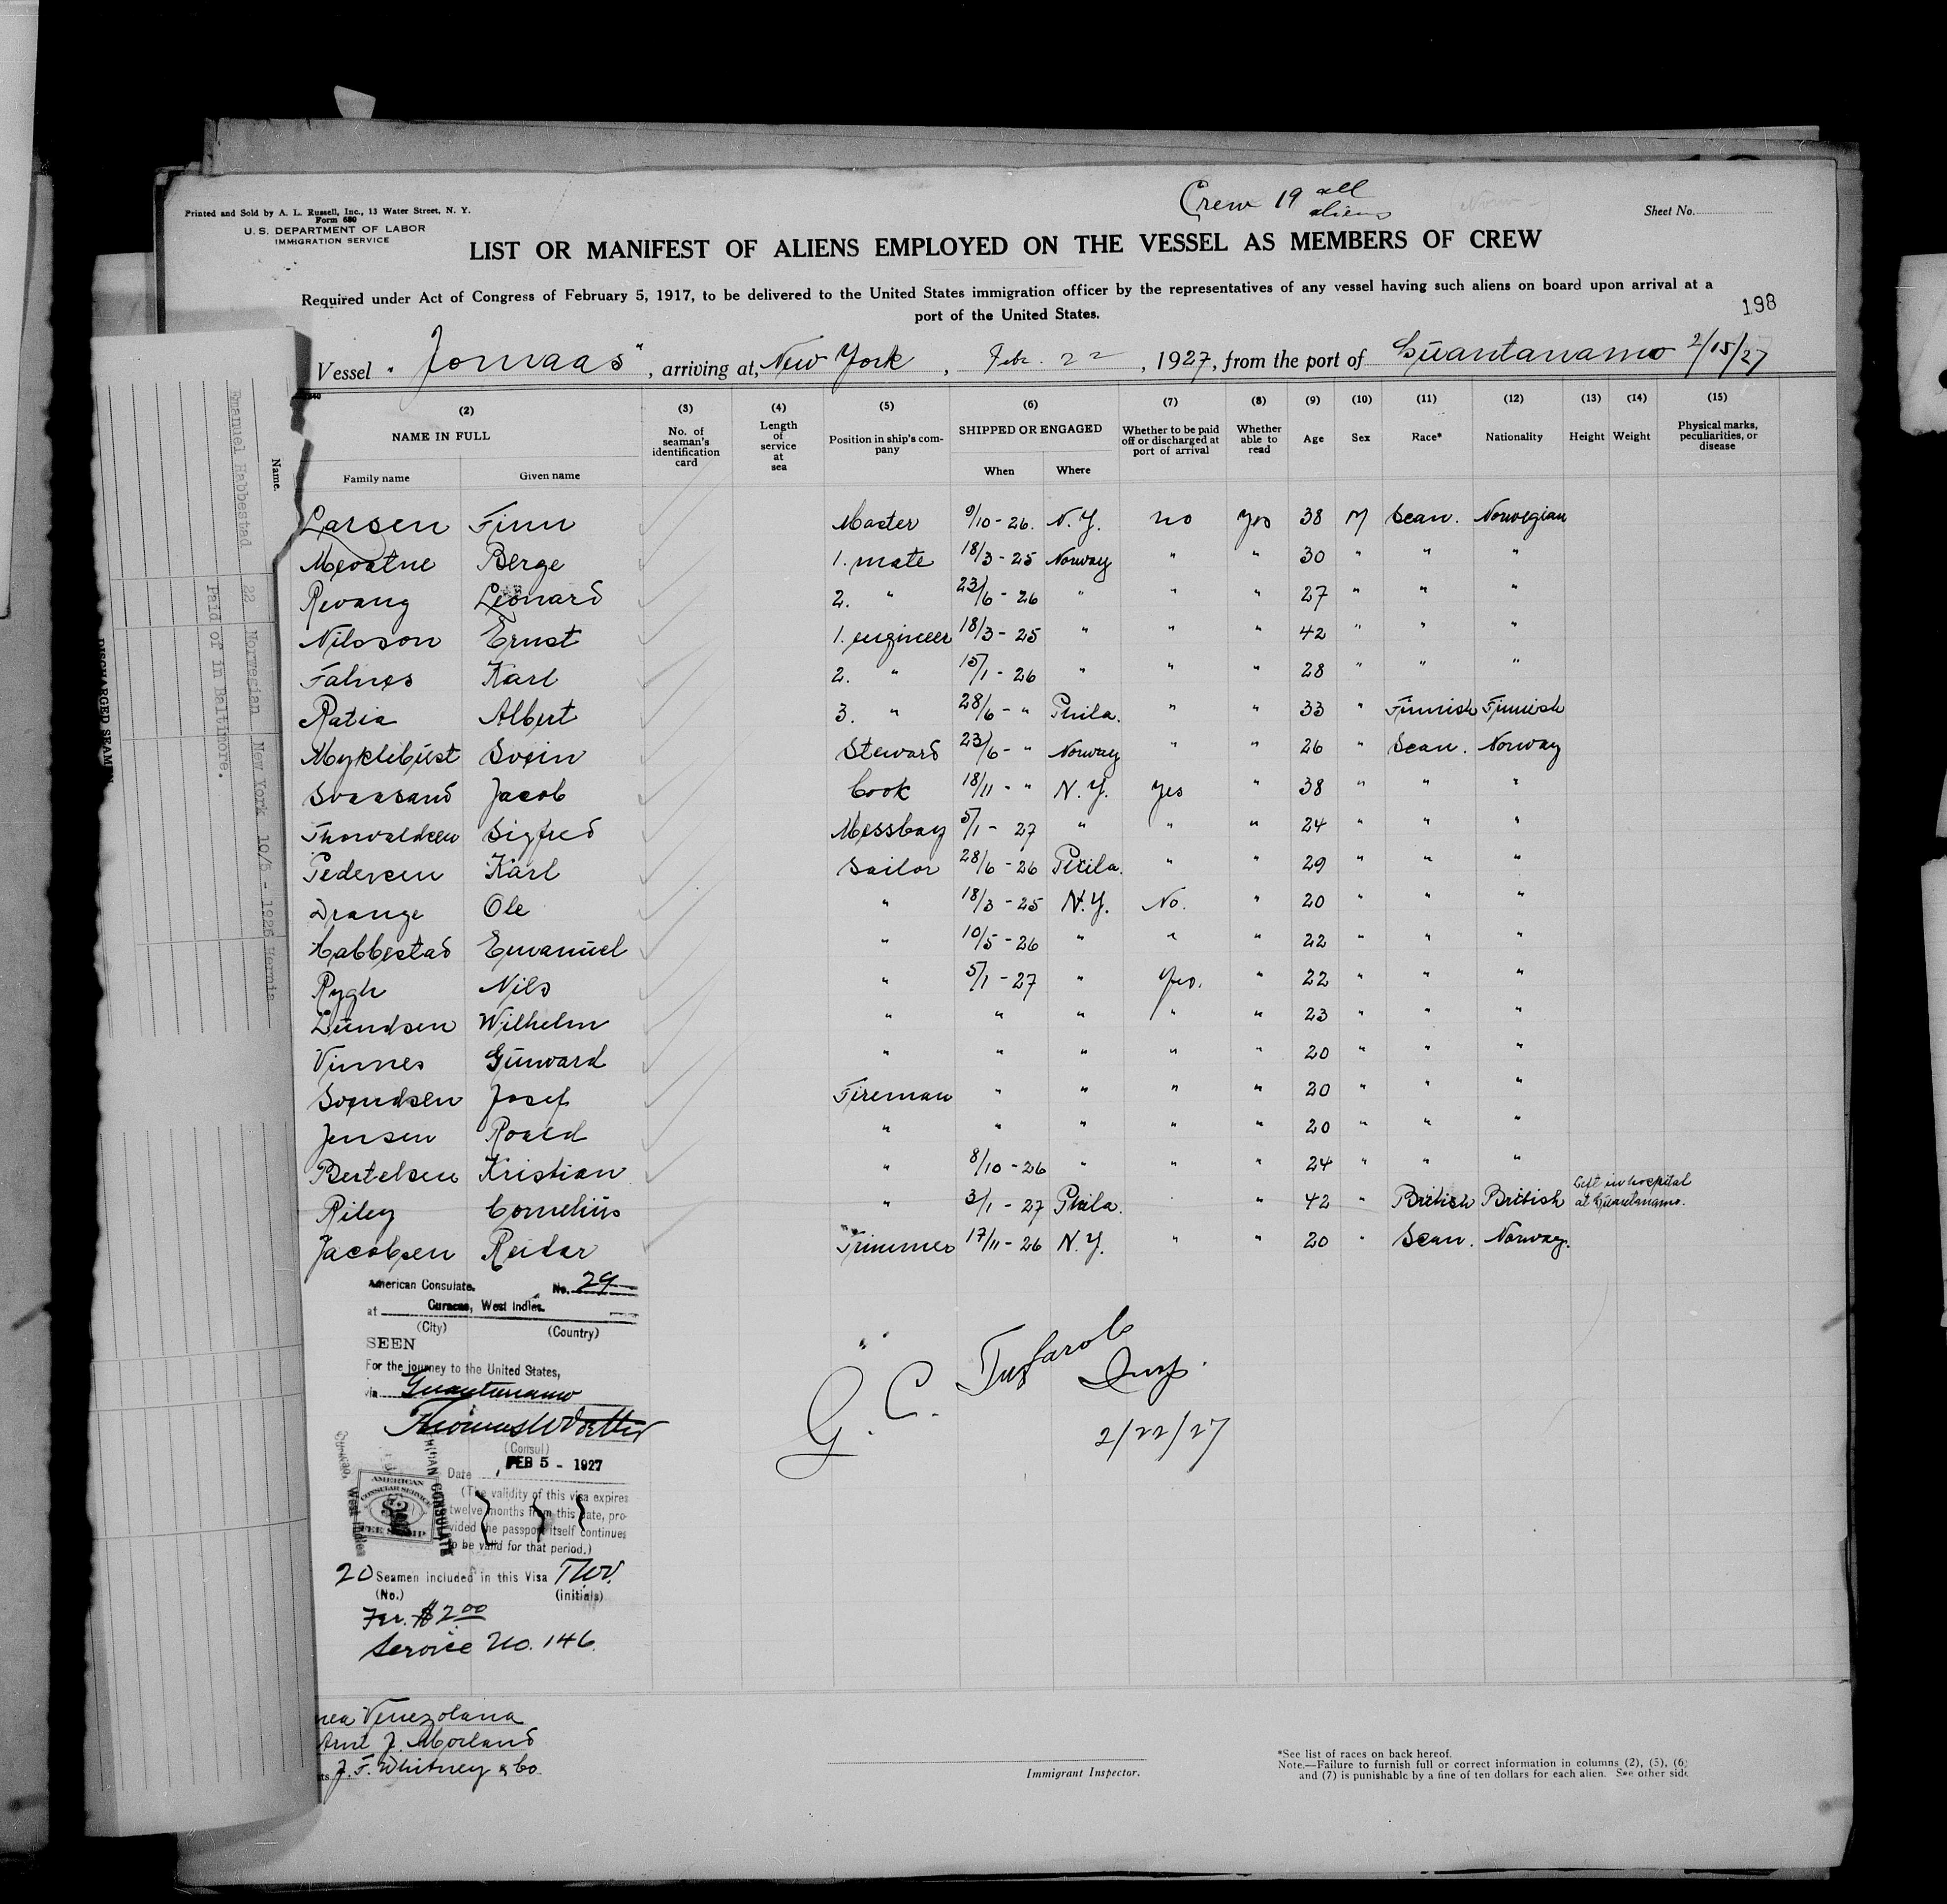 Crew 19 all aliens
Printed and Sold by A. L. Russell, Inc., 13 Water Street, N. Y.
Form 680
U. S. DEPARTMENT OF LABOR
IMMIGRATION SERVICE
Sheet No.
LIST OR MANIFEST OF ALIENS EMPLOYED ON THE VESSEL AS MEMBERS OF CREW
Required under Act of Congress of February 5, 1917, to be delivered to the United States immigration officer by the representatives of any vessel having such aliens on board upon arrival at a
port of the United States.
198
Vessel "Jomaas", arriving at, New York, Febr. 22, 1927, from the port of Guantanamo 2/15/27
(2) (3) (4) (5) (6) (7) (8) (9) (10) (11) (12) (13) (14) (15)
NAME IN FULL No. of seaman's identification card Length of service at sea Position in ship's company SHIPPED OR ENGAGED Whether to be paid off or discharged at port of arrival Whether able to read Age Sex Race* Nationality Height Weight Physical marks, peculiarities, or disease
Family name Given name When Where
Larsen Finn Master 9/10-26. N.Y. no yes 38 M Scan. Norwegian
Mevatne Berge 1. mate 18/3-25 Norway " " 30 " " "
Revang Leonard 2. " 23/6-26 " " " 27 " " "
Nilsson Ernst 1. engineer 18/3-25 " " " 42 " " "
Falnes Karl 2. " 15/1-26 " " " 28 " " "
Ratia Albert 3. " 28/6-" Phila. " " 33 " Finnish Finnish
Myklebust Svein Steward 23/6-" Norway " " 26 " Scan. Norway
Jacob Cook 18/11-" N.Y. Yes " 38 " " "
Thorvaldsen Sigfred Messboy 5/1-27 " " " 24 " " "
Pedersen Karl Sailor 28/6-26 Phila. " " 29 " " "
Drange Ole " 18/3-25 N.Y. No. " 20 " " "
Habbestad Emanuel " 10/5-26 " " " 22 " " "
Rygh Nils " 5/1-27 " Yes. " 22 " " "
Lundsen Wilhelm " " " " " 23 " " "
Vinnes Gunvard " " " " " 20 " " "
Svendsen Josef Fireman " " " " 20 " " "
Jensen Roald " " " " " 20 " " "
Bertelsen Kristian " 8/10-26 " " " 24 " " "
Riley Cornelius " 3/1-27 Phila. " 42 " British British Left in hospital at Guantanamo.
Jacobsen Reidar Trimmer 17/11-26 N.Y. " " 20 " Scan. Norway.
American Consulate. No. 29
at Curacao, West Indies.
(City) (Country)
SEEN
For the journey to the United States,
via Guantanamo
(Consul)
Date FEB 5 - 1927
(The validity of this visa expires
twelve months from this date, pro-
vided the passport itself continues
to be valid for that period.)
AMERICAN
CONSULAR SERVICE
$2
FEE STAMP
AMERICAN CONSULATE
Curacao, West Indies
20 Seamen included in this Visa TWV.
(No.) (initials)
Fee. $2.00
Service No. 146.
G. C. Insp.
2/22/27
nea Venezolana
Arnt J. Morland
ts J. F. Whitney & Co.
Immigrant Inspector.
*See list of races on back hereof.
Note.—Failure to furnish full or correct information in columns (2), (5), (6)
and (7) is punishable by a fine of ten dollars for each alien. See other side
Name.
Emanuel Habbestad 22 Norwegian New York 10/5 - 1926 Hernia
Paid of in Baltimore.
DISCHARGED SEAMEN